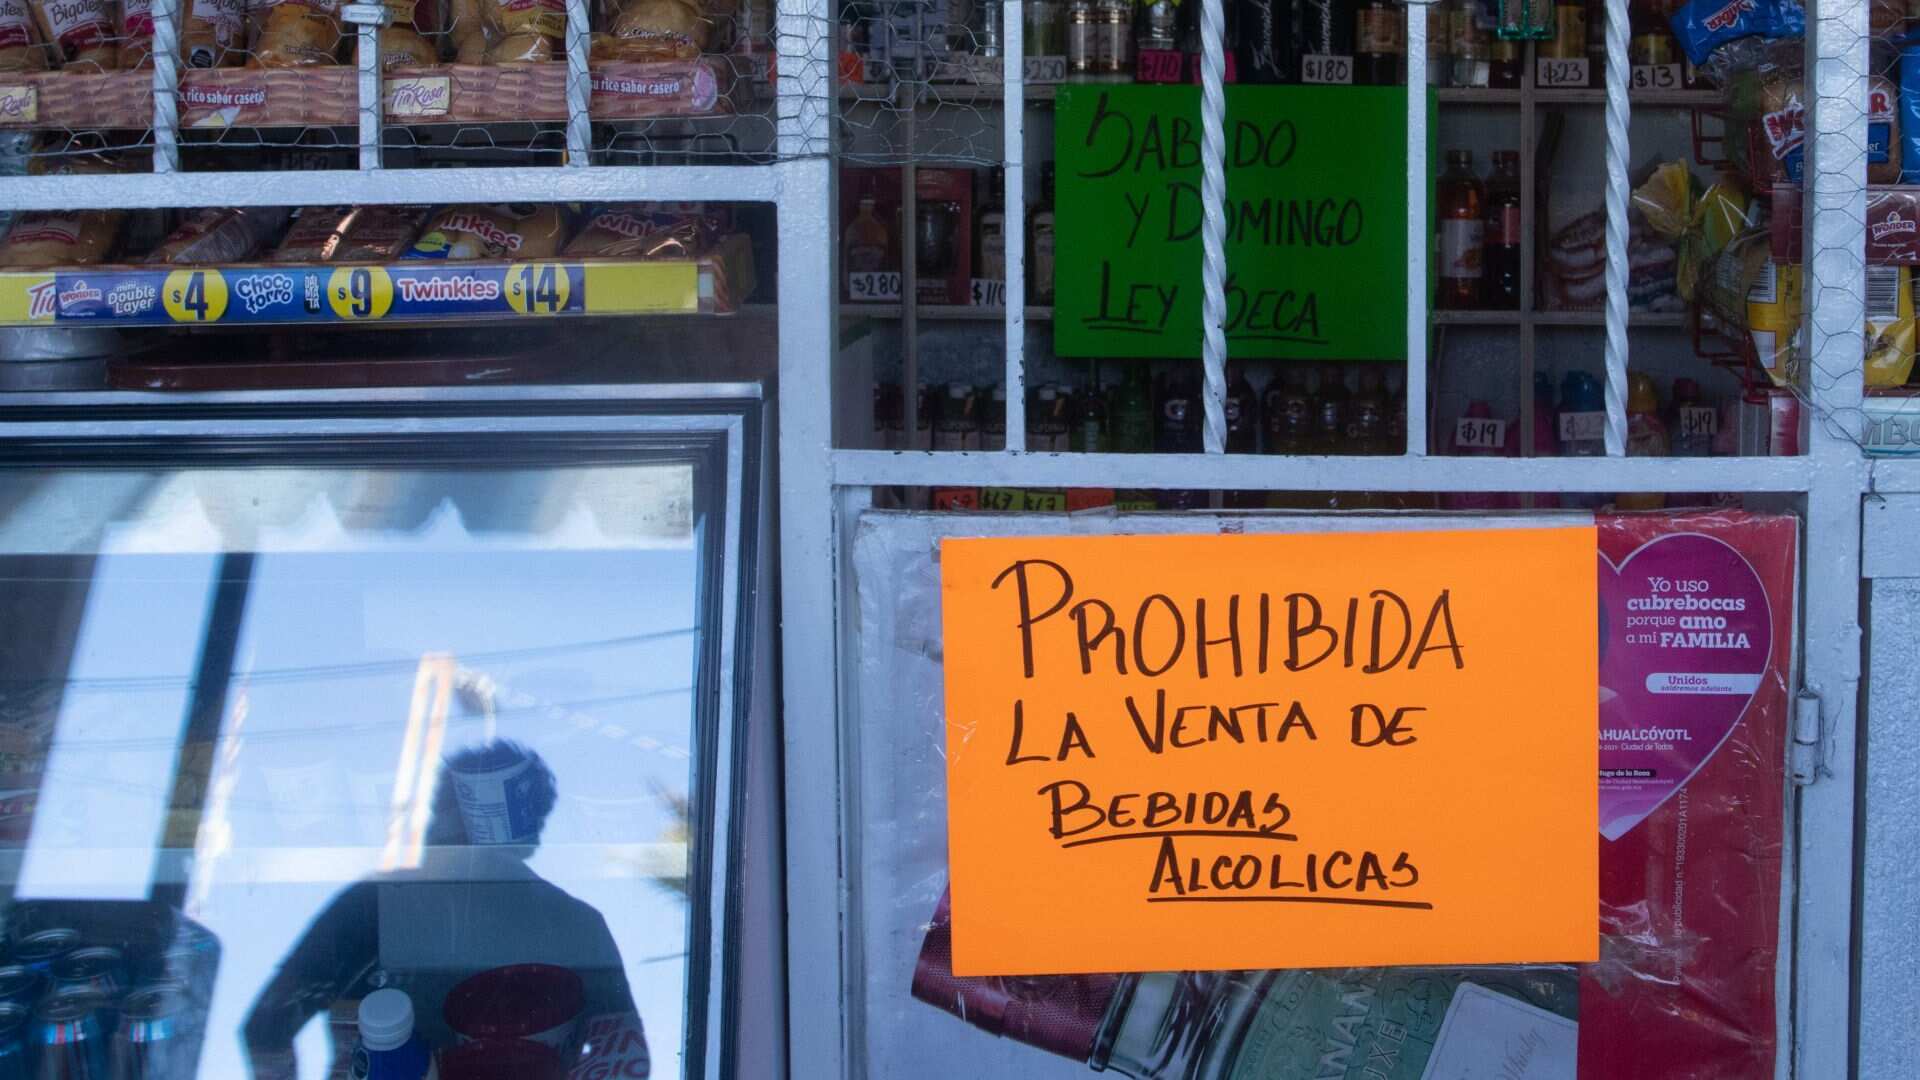 Bigotes
rico sabor casero
Tía Rosa
su rico sabor casero
$250
$110
$180
$23
$13
SABADO
Y DOMINGO
LEY SECA
WONDER
$280
$110
WONDER
mini
Double
Layer
$4
Choco
torro
$9
Twinkies
$14
$19
$19
$17
$17
PROHIBIDA
LA VENTA DE
BEBIDAS
ALCOLICAS
Yo uso
cubrebocas
porque amo
a mi FAMILIA
Unidos
saldremos adelante
AHUALCÓYOTL
Ciudad de Todos
Hugo de la Rosa
Whisky